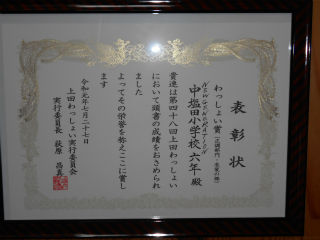 表彰状
わっしょい賞
NEWGENERATION
中塩田小学校六年殿
貴連は第四十八回上田わっしょい
において頭書の成績をおさめられ
ました
よってその栄誉を称えここに賞し
ます
令和元年七月二十七日
上田わっしょい実行委員会
実行委員長 荻原 昌真